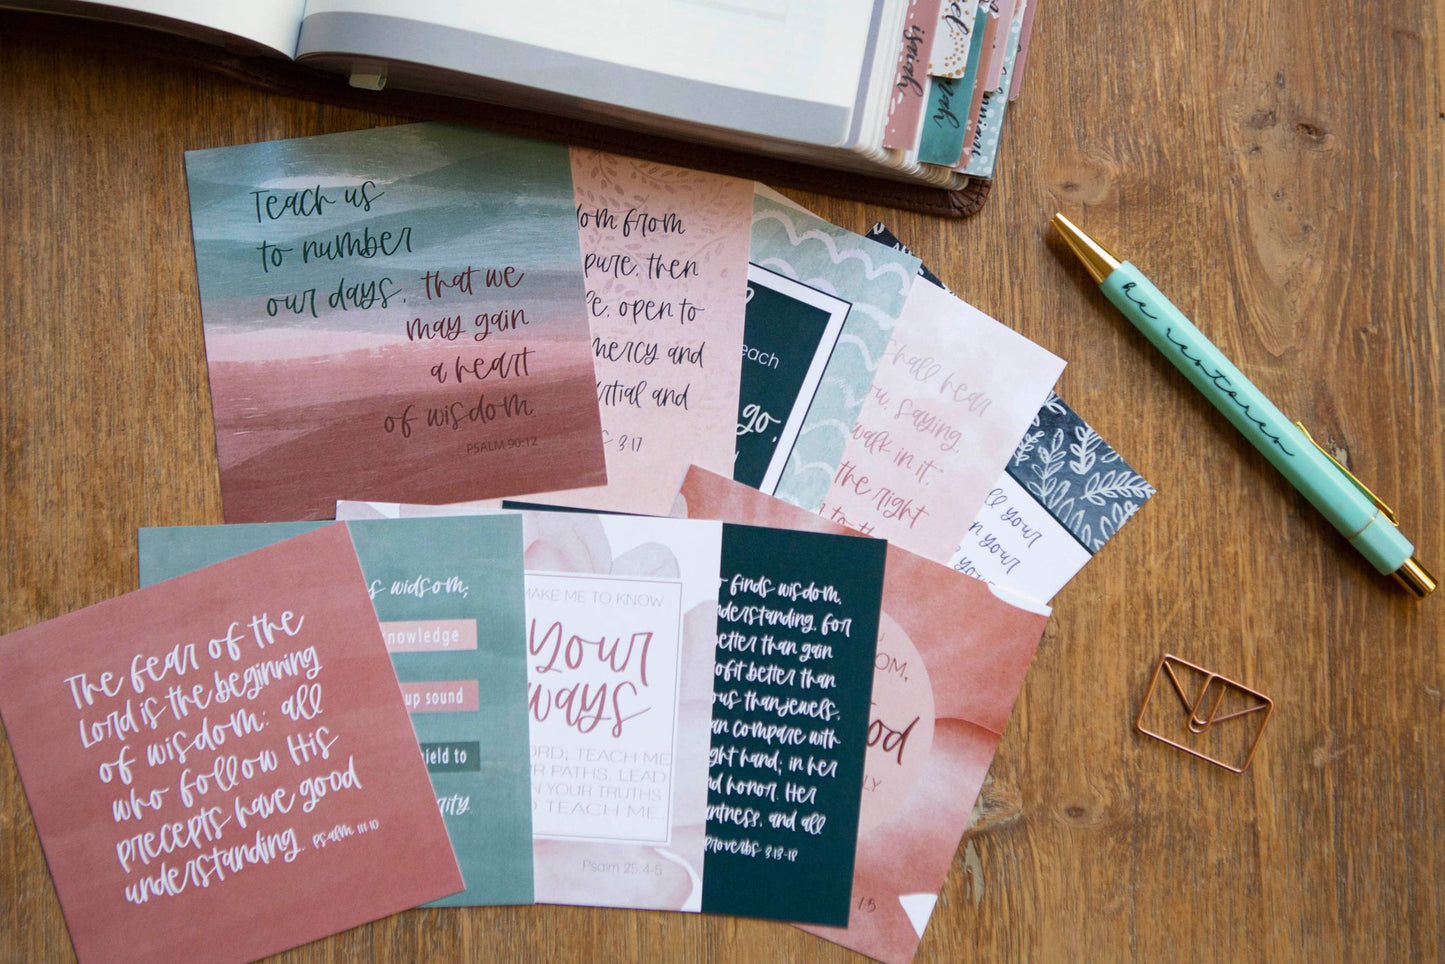 isaiah
Teach us
to number
our days,
that we
may gain
a heart
of wisdom
PSALM 90:12
from
pure, then
open to
mercy and
and
3:17
each
go,
shall hear
saying,
walk in it,"
the right
to the
your
your
he restores
The fear of the
Lord is the beginning
of wisdom; all
who follow His
precepts have good
understanding.
Psalm 111:10
widsom;
knowledge
up sound
to
MAKE ME TO KNOW
Your
ways
TEACH ME
PATHS. LEAD
YOUR TRUTHS
TEACH ME
Psalm 25:4-5
finds wisdom,
for
better than gain
better than
than jewels.
compare with
hand; in her
honor. Her
and all
Proverbs 3:13-18